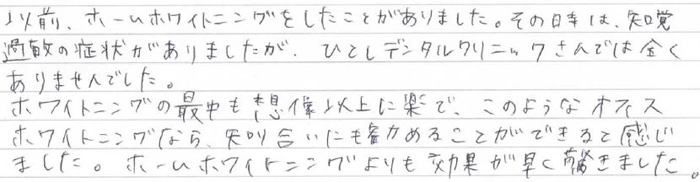 以前、ホームホワイトニングをしたことがありました。その時は、知覚
過敏の症状がありましたが、ひとしデンタルクリニックさんでは全く
ありませんでした。
ホワイトニングの最中も想像以上に楽で、このようなオフィス
ホワイトニングなら、知り合いにも勧めることができると感じ
ました。ホームホワイトニングよりも効果が早く驚きました。